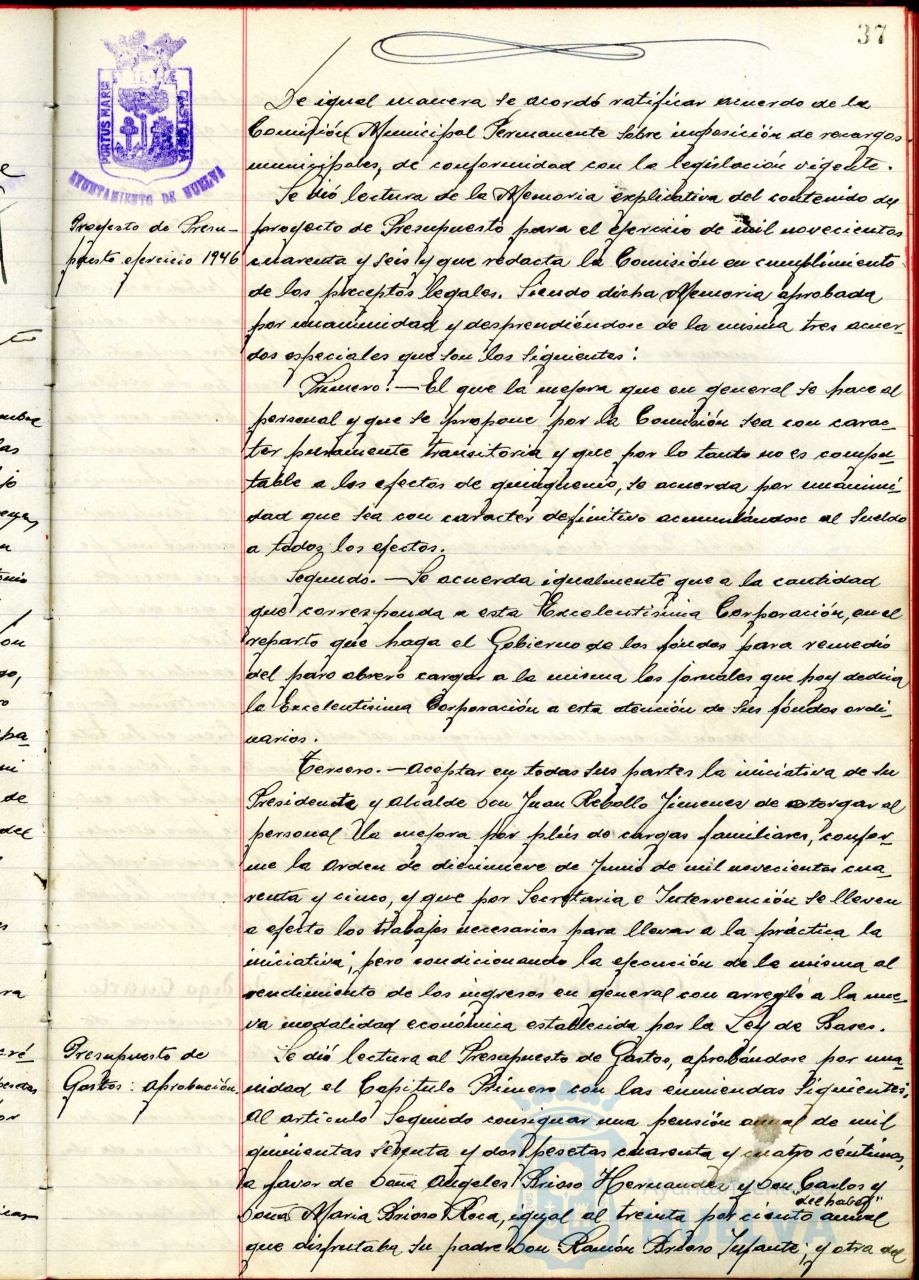 37
PORTUS MARIS
ET TERRAE
CUSTODIA
AYUNTAMIENTO DE HUELVA
De igual manera se acordó ratificar acuerdo de la
Comisión Municipal Permanente sobre imposición de recargos
municipales, de conformidad con la legislación vigente.
Se dió lectura de la Memoria explicativa del contenido del
Proyecto de Presu-
puesto ejercicio 1946
proyecto de Presupuesto para el ejercicio de mil novecientos
cuarenta y seis y que redacta la Comisión en cumplimiento
de los preceptos legales. Siendo dicha Memoria aprobada
por unanimidad y desprendiéndose de la misma tres acuer-
dos especiales que son los siguientes:
Primero.- El que la mejora que en general se hace al
personal y que se propone por la Comisión sea con carac-
ter puramente transitoria y que por lo tanto no es compu-
table a los efectos de quinquenio, se acuerda por unanimi-
dad que sea con caracter definitivo acumulándose al sueldo
a todos los efectos.
Segundo.- Se acuerda igualmente que a la cantidad
que corresponda a esta Excelentísima Corporación, en el
reparto que haga el Gobierno de los fóndos para remedio
del paro obrero cargar a la misma los jornales que hoy dedica
la Excelentísima Corporación a esta atención de sus fóndos ordi-
narios.
Tercero.- Aceptar en todas sus partes la iniciativa de su
Presidente y Alcalde Don Juan Rebollo Jimenez de otorgar al
personal la mejora por plús de cargas familiares, confor-
me la Orden de diecinueve de Junio de mil novecientos cua-
renta y cinco, y que por Secretaria e Intervención se lleven
a efecto los trabajos necesarios para llevar a la práctica la
iniciativa; pero condicionando la ejecución de la misma al
rendimiento de los ingresos en general con arreglo a la nue-
va modalidad económica establecida por la Ley de Bases.
Presupuesto de
Gastos: aprobación.
Se dió lectura al Presupuesto de Gastos, aprobándose por una-
nidad el Capítulo Primero con las enmiendas siguientes:
Al artículo Segundo consignar una pensión anual de mil
quinientas setenta y dos pesetas cuarenta y cuatro céntimos,
a favor de Doña Angeles Brioso Hernandez y Don Carlos y
"del haber"
Doña Maria Brioso Roca, igual al treinta por ciento anual
que disfrutaba su padre Don Ramón Brioso Infante; y otra del
Ayuntamiento
HUELVA